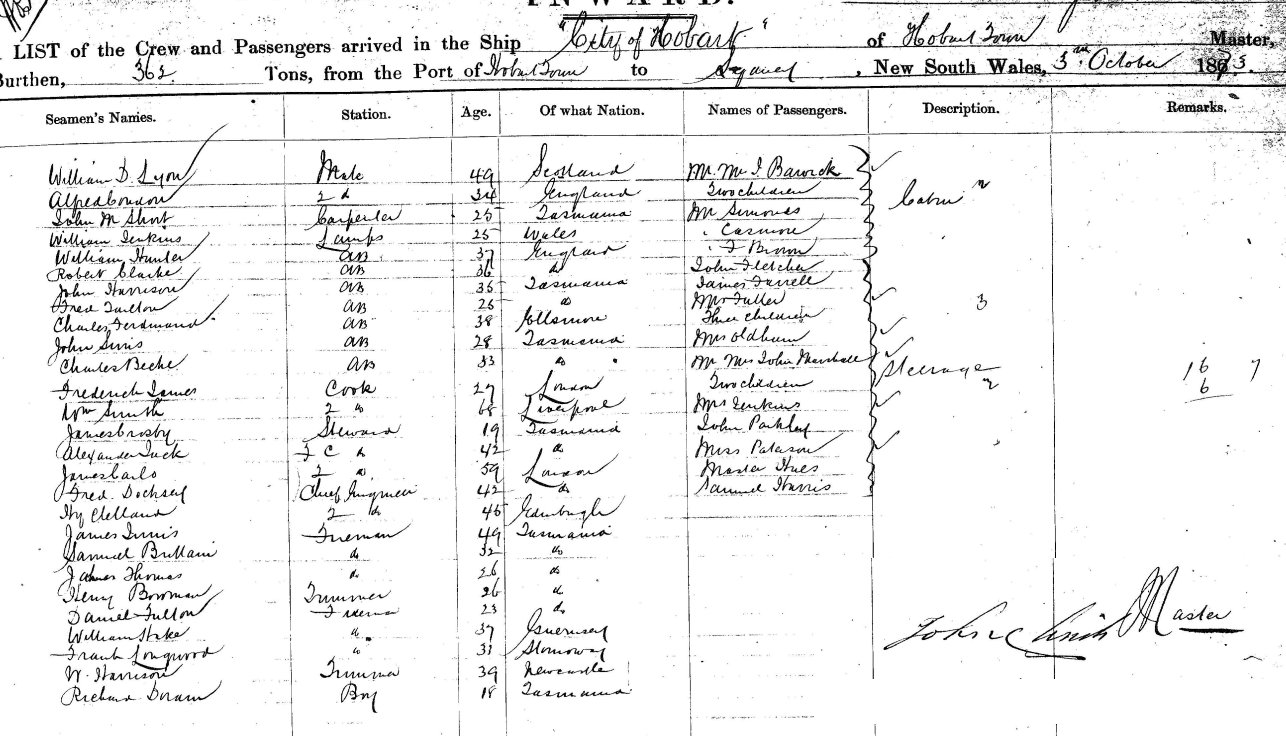 INWARD.
LIST of the Crew and Passengers arrived in the Ship "City of Hobart" of Hobart Town Master,
Burthen, 362 Tons, from the Port of Hobart Town to Sydney, New South Wales, 3rd October 1873.
Seamen's Names. Station. Age. Of what Nation. Names of Passengers. Description. Remarks.
William D. Lyon Mate 49 Scotland Mr. Mrs Barwick
Alfred Condon 2 d 34 England Two children Cabin
John M Short Carpenter 25 Tasmania Mr Simonds
William Jenkins Lamps 25 Wales " Casmore
William Hunter AB 37 England " F Brown
Robert Clarke AB 36 do John Fletcher
John Harrison AB 35 Tasmania James Farrell
Fred Fulton AB 25 do Mrs Fuller 3
Charles Ferdinand AB 38 Three children
John Innis AB 28 Tasmania Mrs Oldham
Charles Beebe AB 33 do Mr Mrs John Marshall
Frederick James Cook 27 London Two children Steerage 16 7
Wm Smith 2 do 68 Liverpool Mrs Jenkins 6
James Crosby Steward 19 Tasmania John
Alexander Tuck F C do 42 do Miss Paterson
James 2 do 59 London Master
Fred Chief Engineer 42 do Samuel Harris
Hy Clelland 2 do 45 Edinburgh
James Innis Fireman 49 Tasmania
Samuel Brittain do 32 do
James Thomas do 26 do
Henry Bowman Trimmer 26 do
Daniel Fulton Fireman 23 do
William Hake do 37 Guernsey
Frank Longwood do 31 Stornoway
W. Harrison Trimmer 39 Newcastle
Richard Doran Boy 18 Tasmania
John Clinch Master